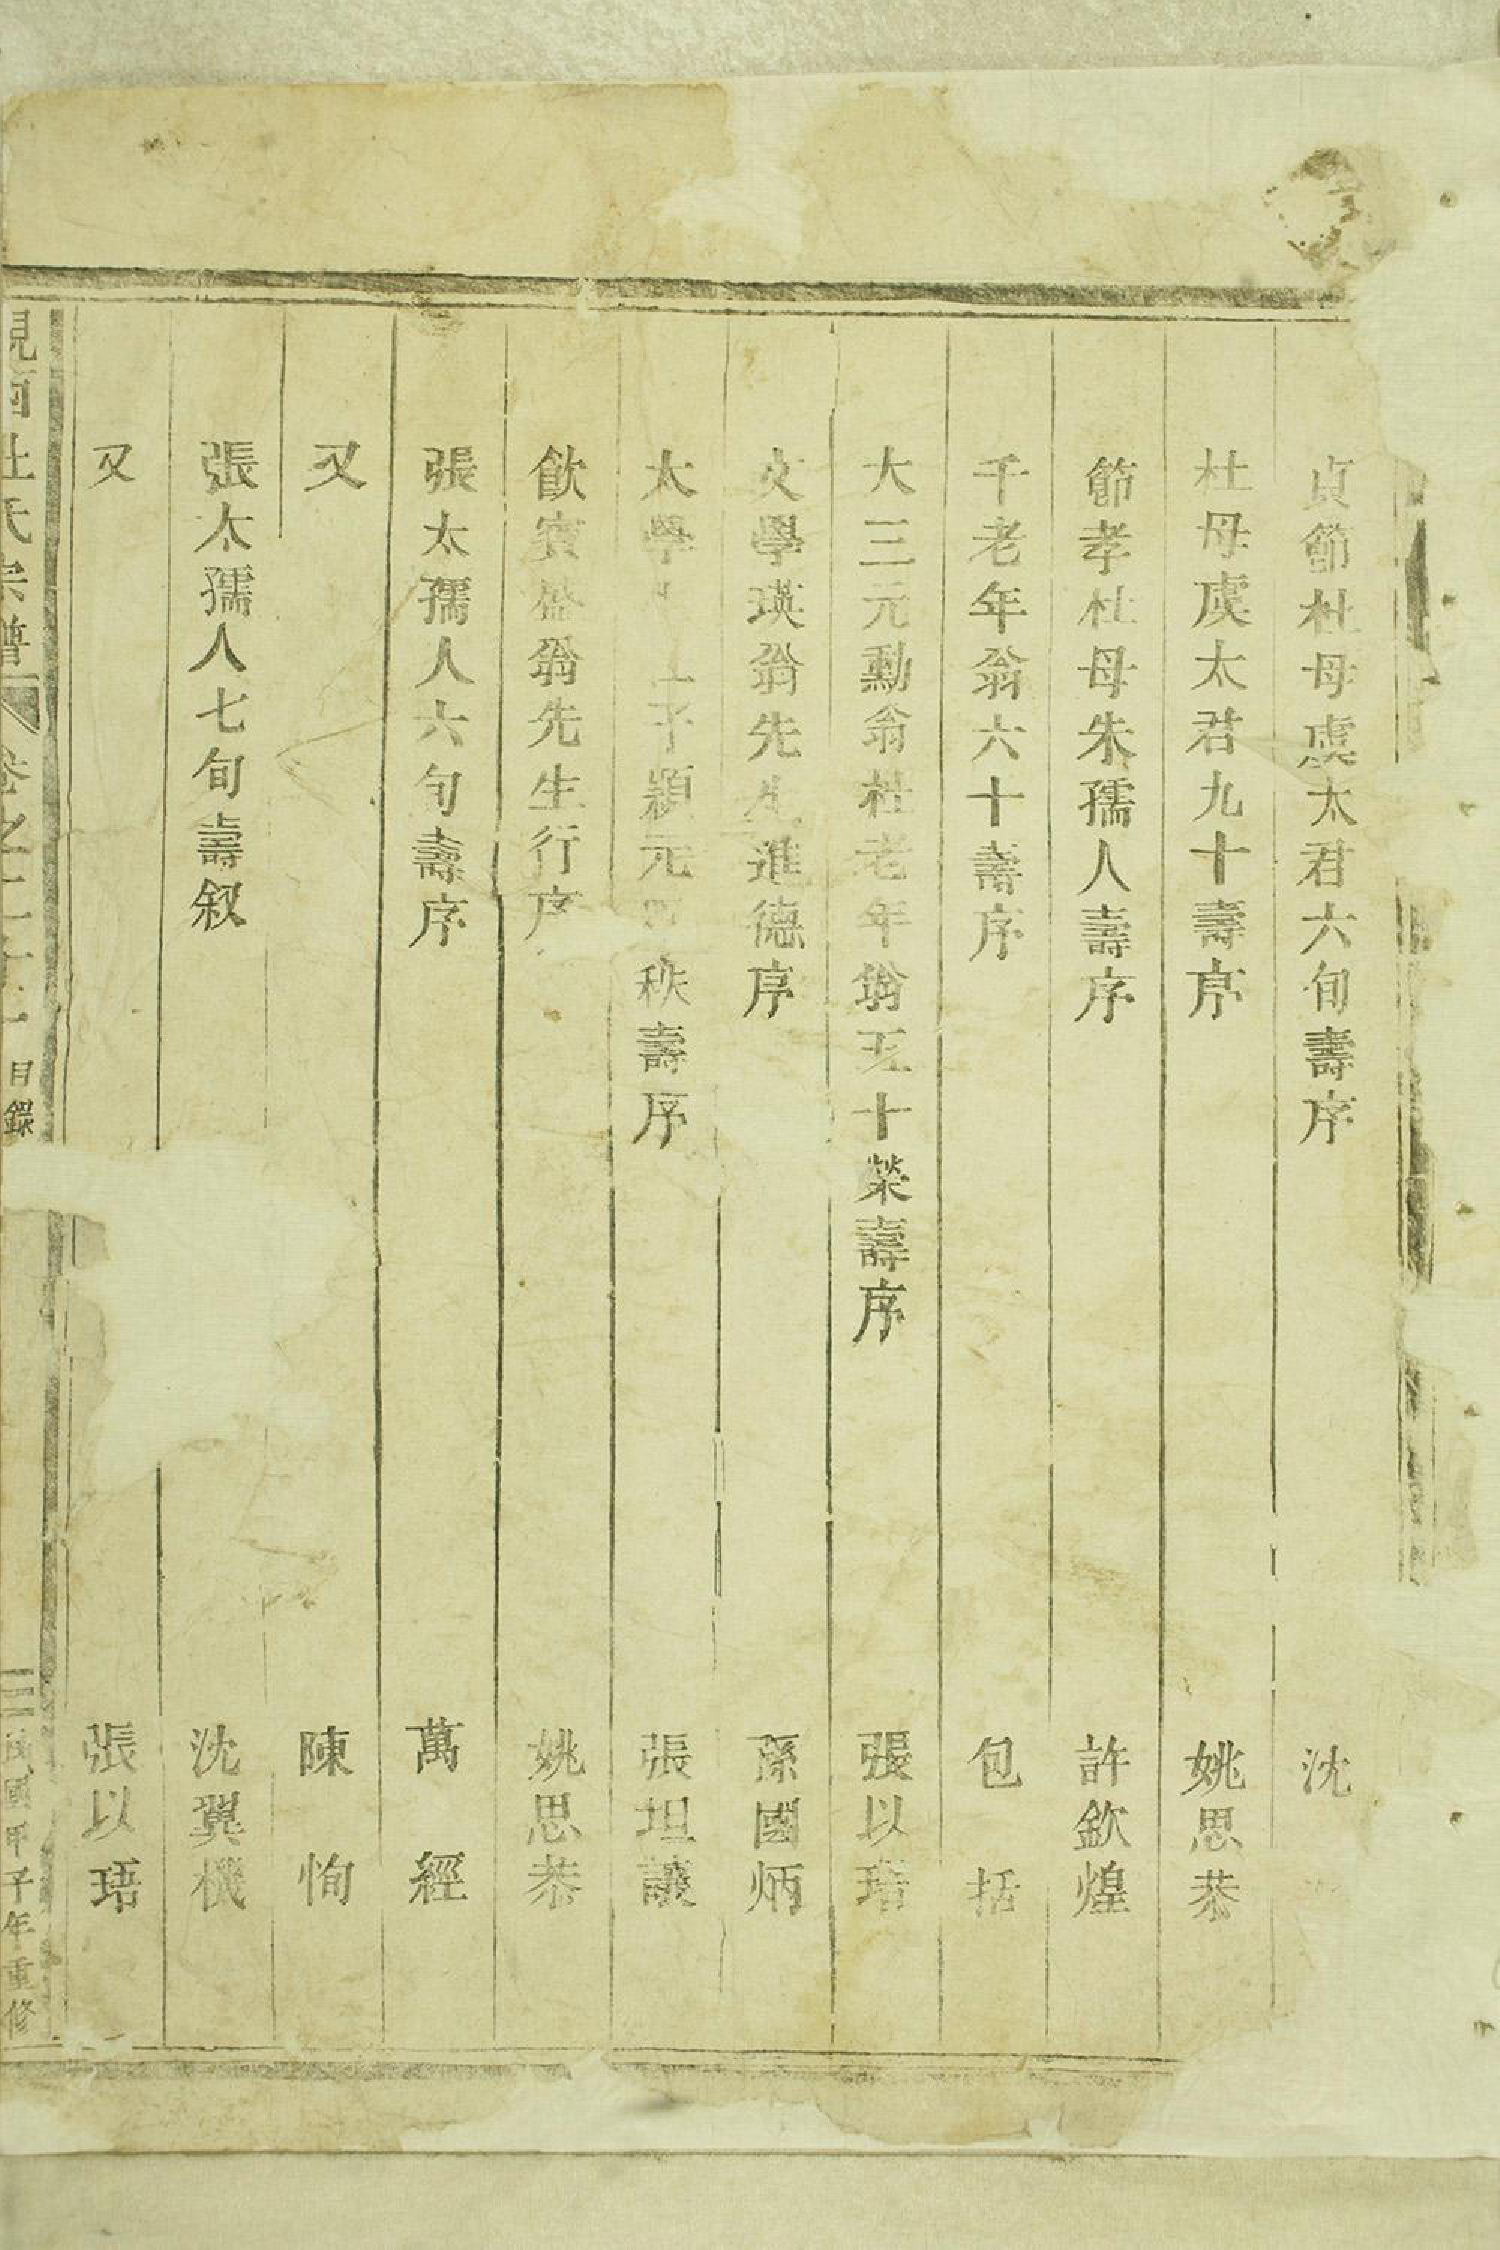 貞節杜母虞太君六旬壽序 沈
杜母虞太君九十壽序 姚思恭
節孝杜母朱孺人壽序 許欽煌
千老年翁六十壽序 包括
大三元勳翁杜老年翁五十榮壽序 張以珸
文學瑛翁先生進德序 孫國炳
太學 穎元 秩壽序 張坦議
飲賓盛翁先生行序 姚思恭
張太孺人六旬壽序 萬經
又 陳恂
張太孺人七旬壽叙 沈翼機
又 張以珸
杜氏宗譜 卷之二十一 目錄 三 民國甲子年重修